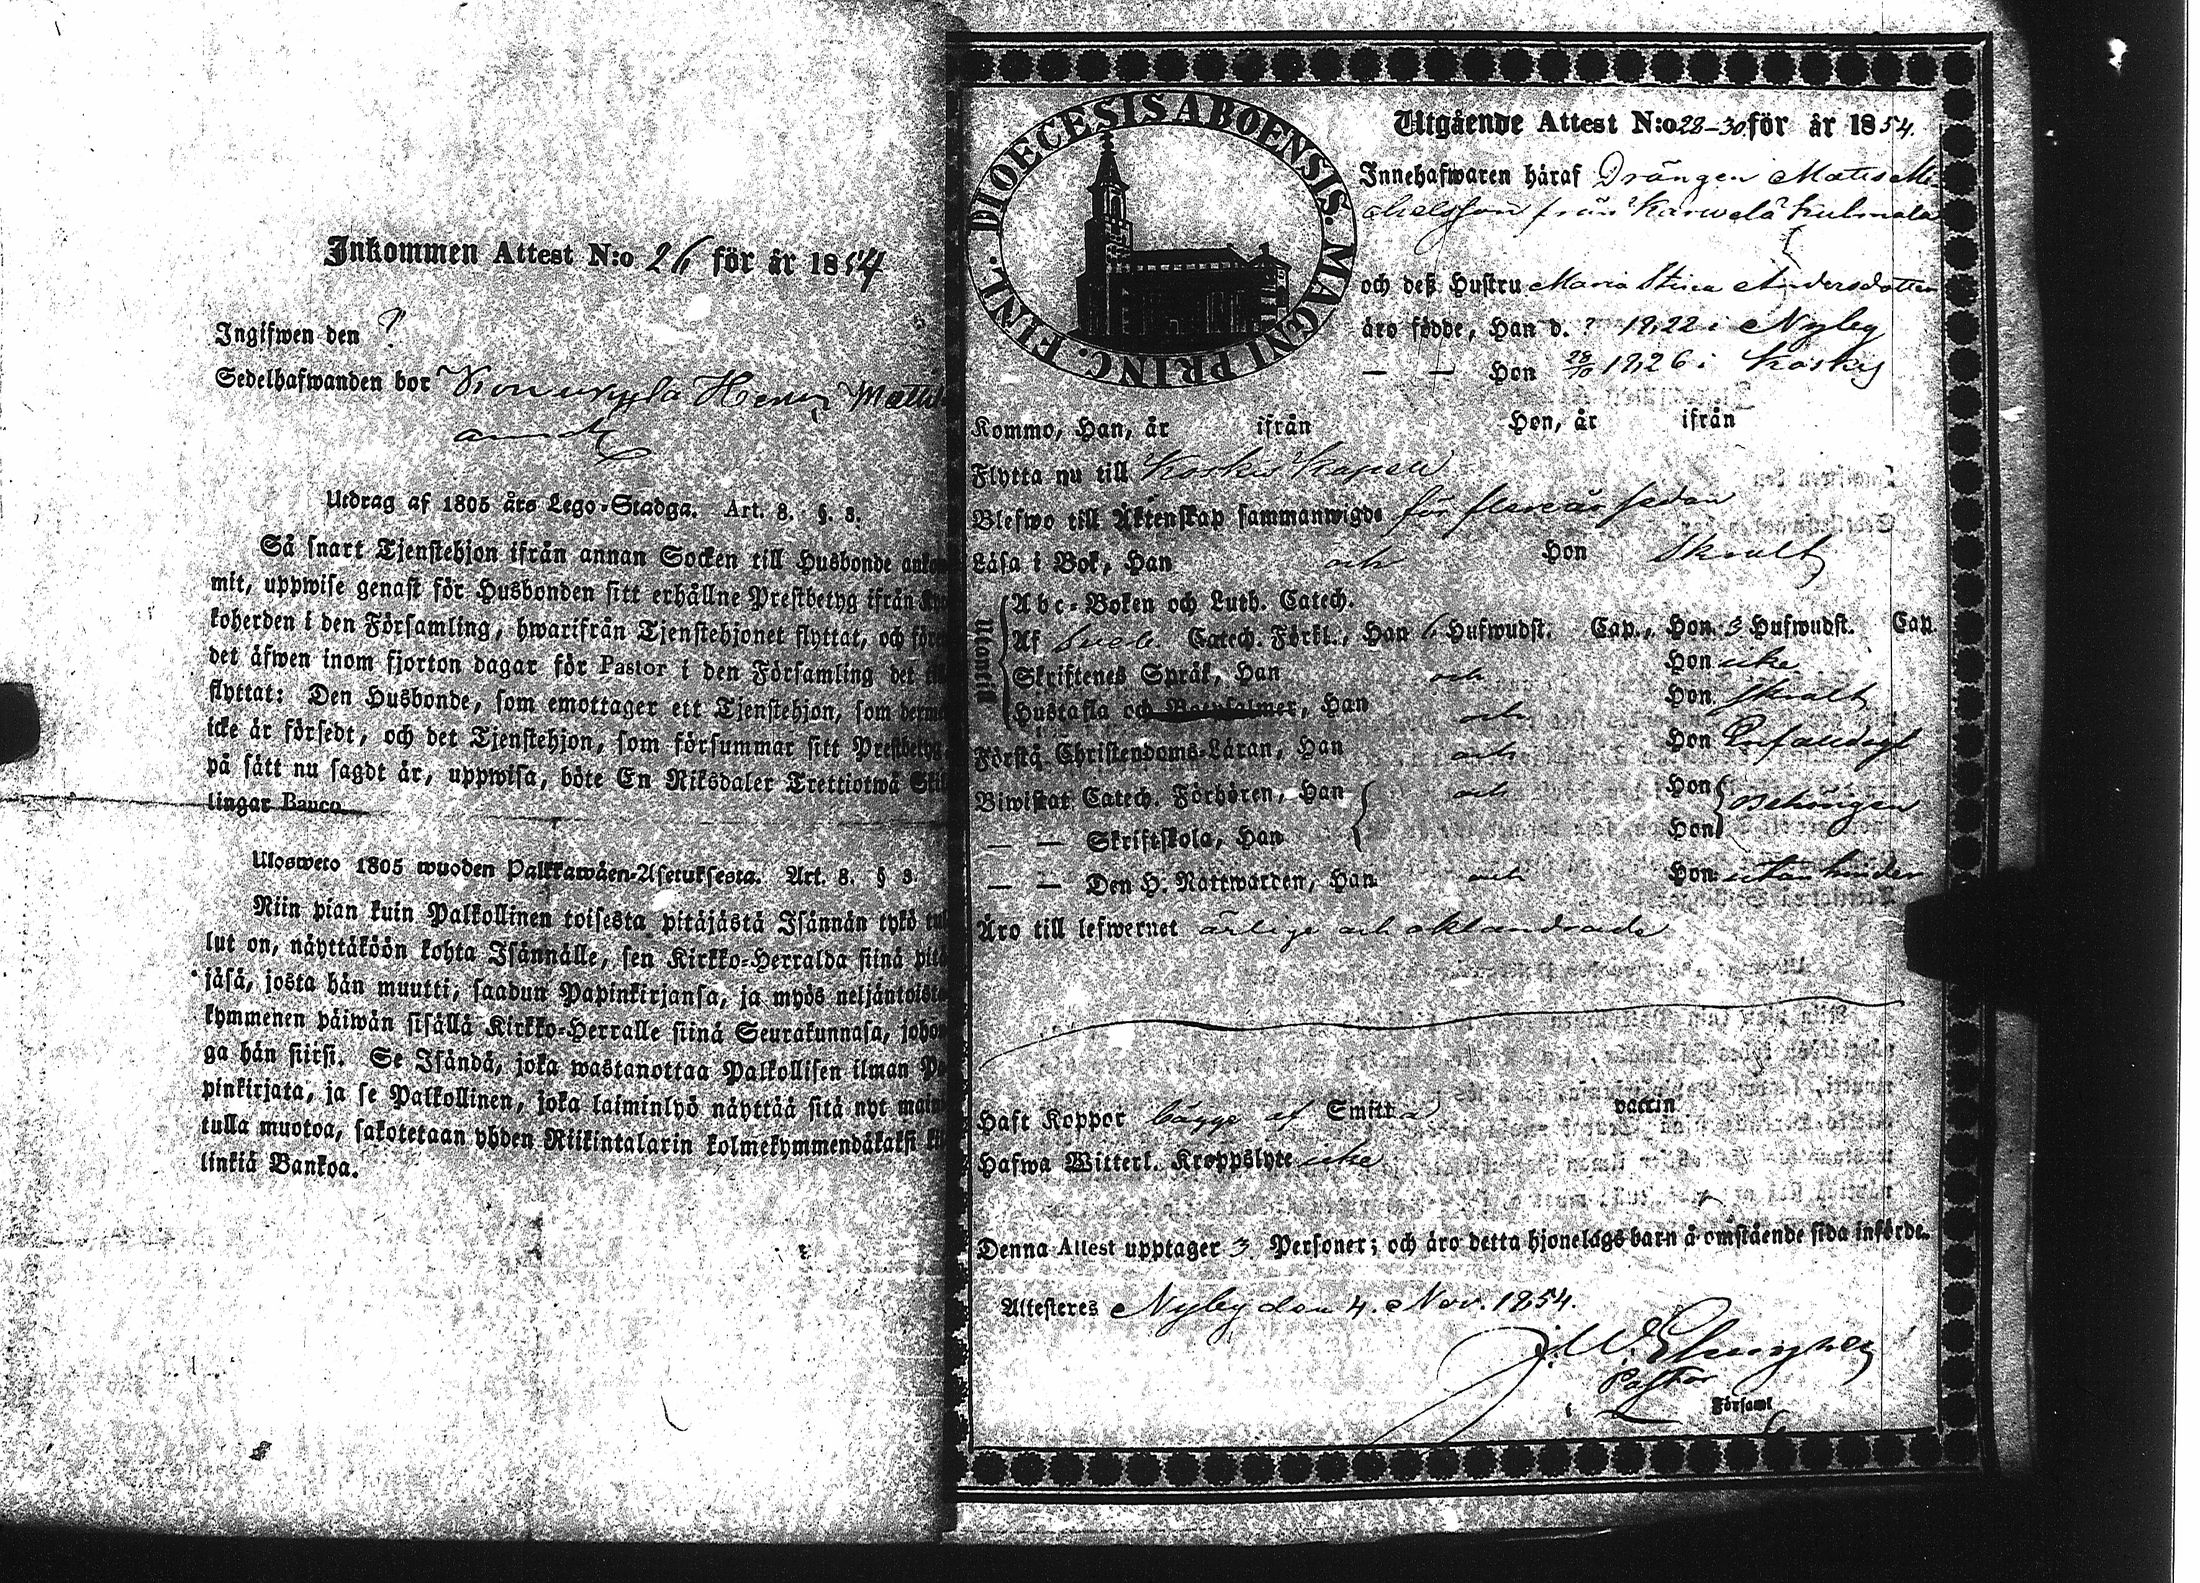 Inkommen Attest N:o 26 för år 1854
Ingifwen den ?
Sedelhafwanden bor
Utdrag af 1805 års Lego-Stadga. Art. 8. §. 8.
Så snart Tjenstehjon ifrån annan Socken till Husbonde ankom
mit, uppwise genast för Husbonden sitt erhållne Prestbetyg ifrån Kyr
koherden i den Församling, hwarifrån Tjenstehjonet flyttat, och före
det äfwen inom fjorton dagar för Pastor i den Församling det till
flyttat: Den Husbonde, som emottager ett Tjenstehjon, som derme
icke är försedt, och det Tjenstehjon, som försummar sitt Prestbetyg
på sätt nu sagdt är, uppwisa, böte En Riksdaler Trettiotwå Skil
lingar Banco.
Ulosweto 1805 wuoden Palkkawäen-Asetuksesta. Art. 8. § 8.
Niin pian kuin Palkollinen toisesta pitäjästä Isännän tykö tul
lut on, näyttäköön kohta Isännälle, sen Kirkko-Herralda siinä pitä
jäsä, josta hän muutti, saadun Papinkirjansa, ja myös neljäntoista
kymmenen päiwän sisällä Kirkko-Herralle siinä Seurakunnasa, johon
ga hän siirsi. Se Isändä, joka wastanottaa Palkollisen ilman Pa
pinkirjata, ja se Palkollinen, joka laiminlyö näyttää sitä nyt maini
tulla muotoa, sakotetaan yhden Riikintalarin kolmekymmendäkaksi kil
linkiä Bankoa.
DIOECESIS ABOENSIS. MAGNI PRINC. FINL.
Utgående Attest N:o 28-30 för år 1854.
Innehafwaren häraf Drängen Matts Mi-
chelsson från Karwela Kulmala
och deß Hustru Maria Stina Andersdotter
äro födde, Han d. ? 1822 i Nyby
— — Hon 28/10 1826 i Koskis
Kommo, Han, år ifrån Hon, år ifrån
Flytta nu till Koskis Kapell
Blefwo till Äktenskap sammanwigde för flera år sedan
Läsa i Bok, Han och Hon swalt
Utantill
Abc-Boken och Luth. Catech.
Af Sveb. Catech. Förkl., Han 6 Hufwudst. Cap., Hon 3 Hufwudst. Cap.
Skriftenes Språk, Han och Hon icke
Hustafla och Botpsalmer, Han och Hon swalt
Förstå Christendoms-Läran, Han och Hon Enfaldigt
Biwistat Catech. Förhören, Han och Hon behörigen
— — Skriftskola, Han Hon
— — Den H. Nattwarden, Han och Hon utan hinder
Äro till lefwernet ärlige och oklandrade
Haft Koppor bägge af Smitta vaccin
Hafwa Witterl. Kroppslyte icke
Denna Attest upptager 3 Personer; och äro detta hjonelags barn å omstående sida införde.
Attesteres Nyby den 4. Nov. 1854.
Pastor
i Församl